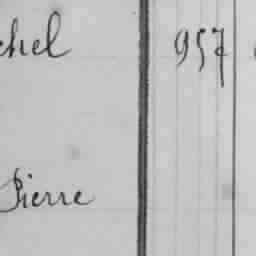 chel 957
Pierre